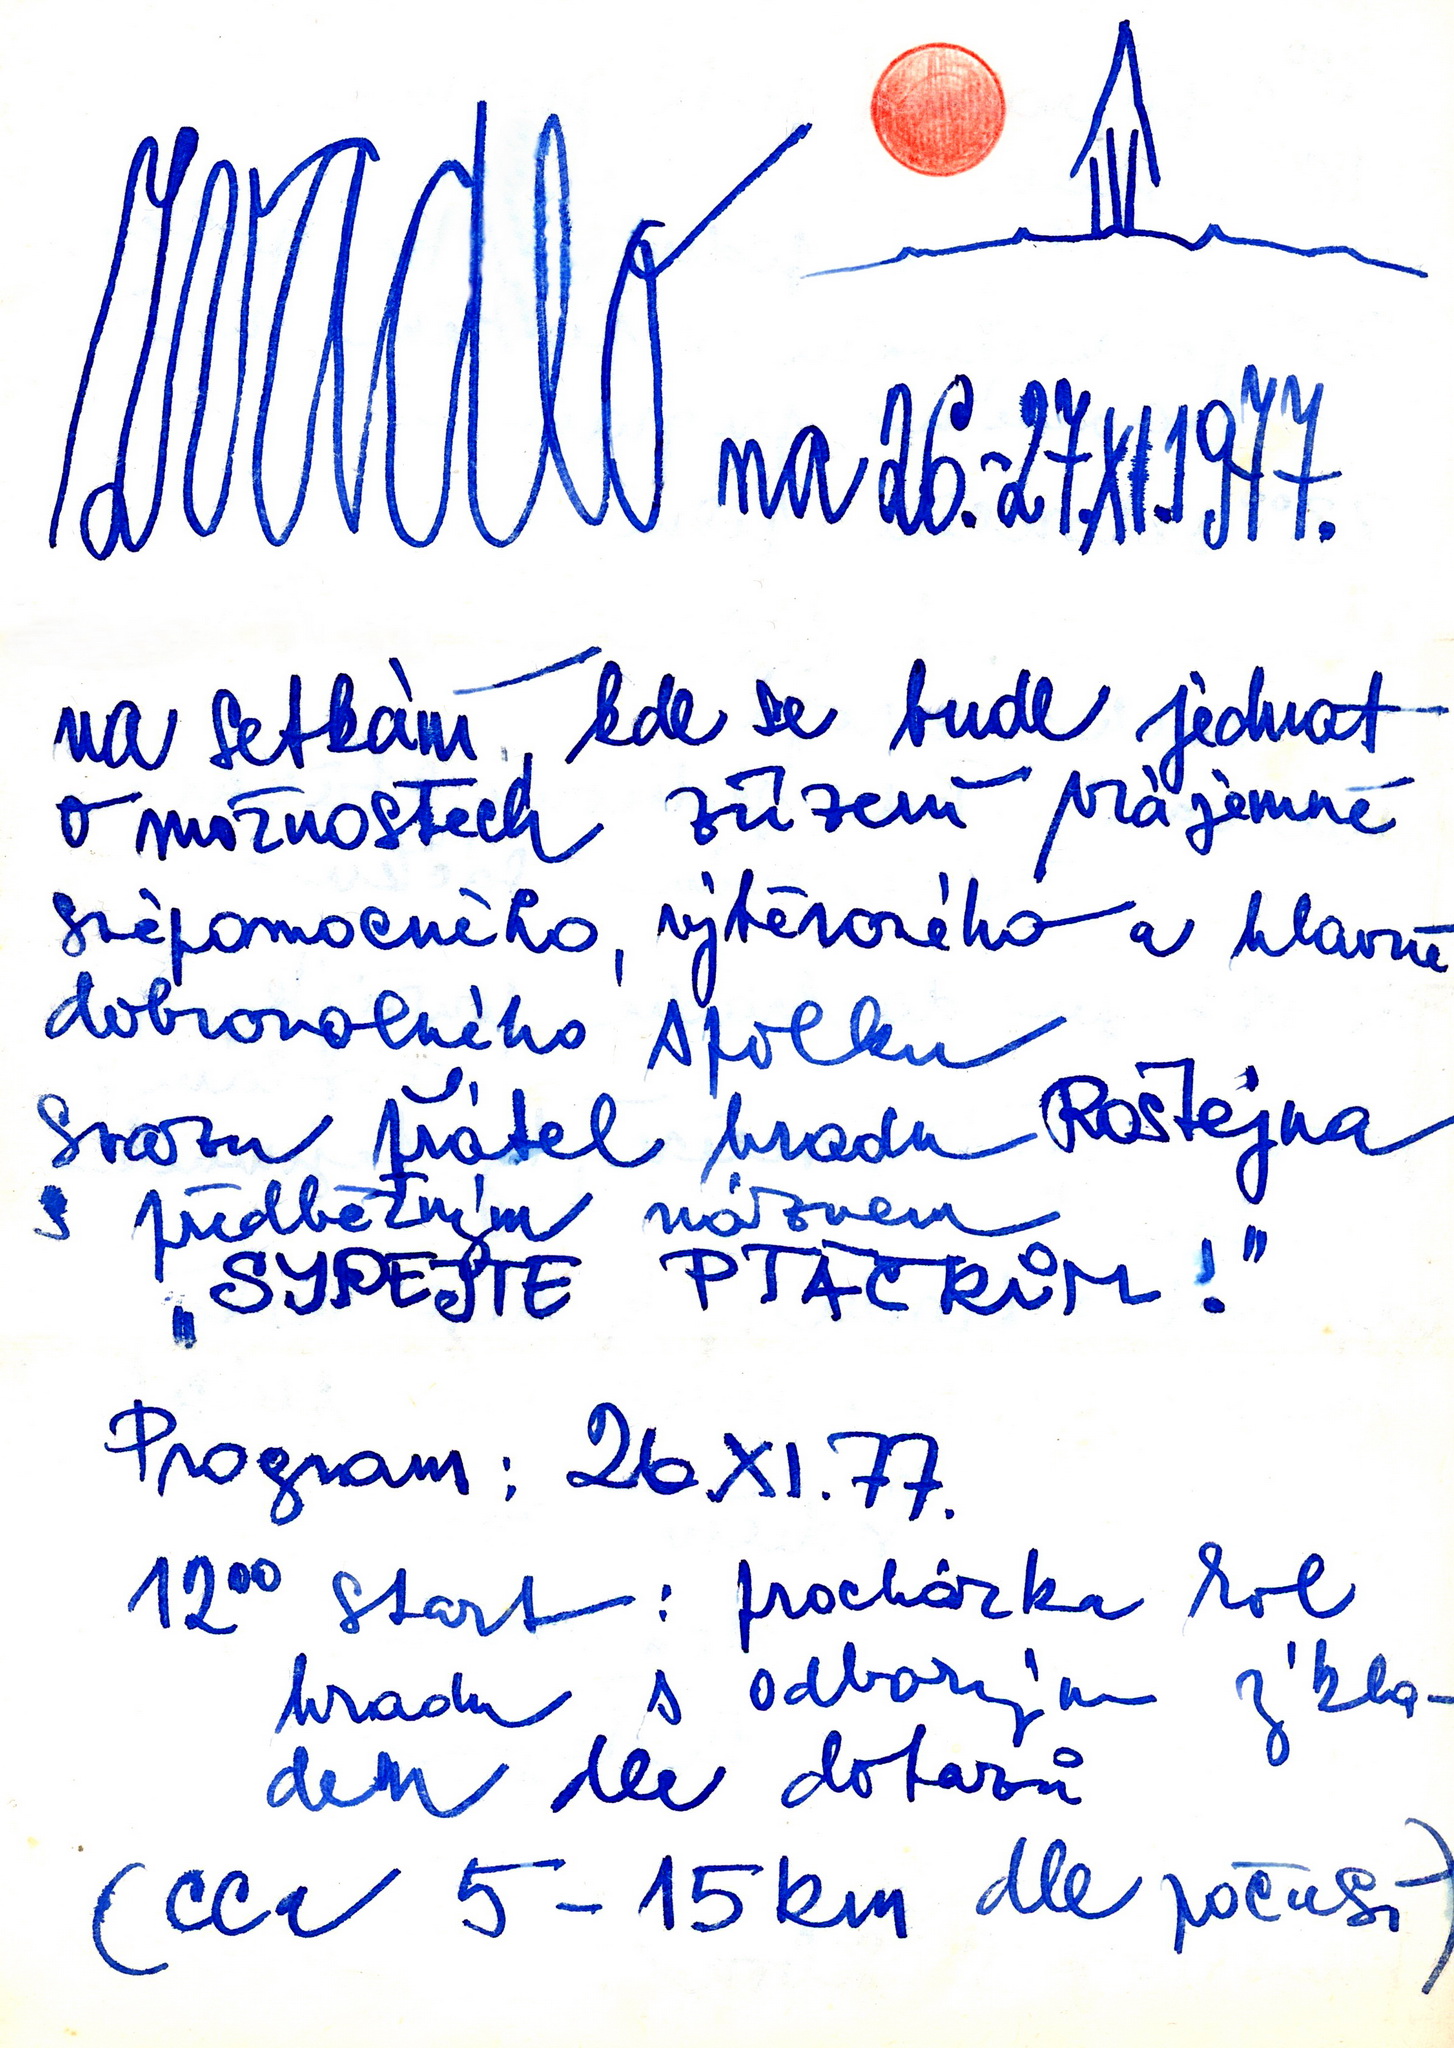 zvadlo
na 26.-27.XI.1977.
na setkání, kde se bude jednat
o možnostech zřízení prájemně
svépomocného, výběrového a hlavně
dobrovolného spolku
Svazu přátel hradu Roštejna
s předběžným názvem
„SYPEJTE PTÁČKŮM!"
Program: 26.XI.77.
12⁰⁰ start: procházka kol
hradu s odborným
dem dle dotazů
(cca 5-15km dle počasí)